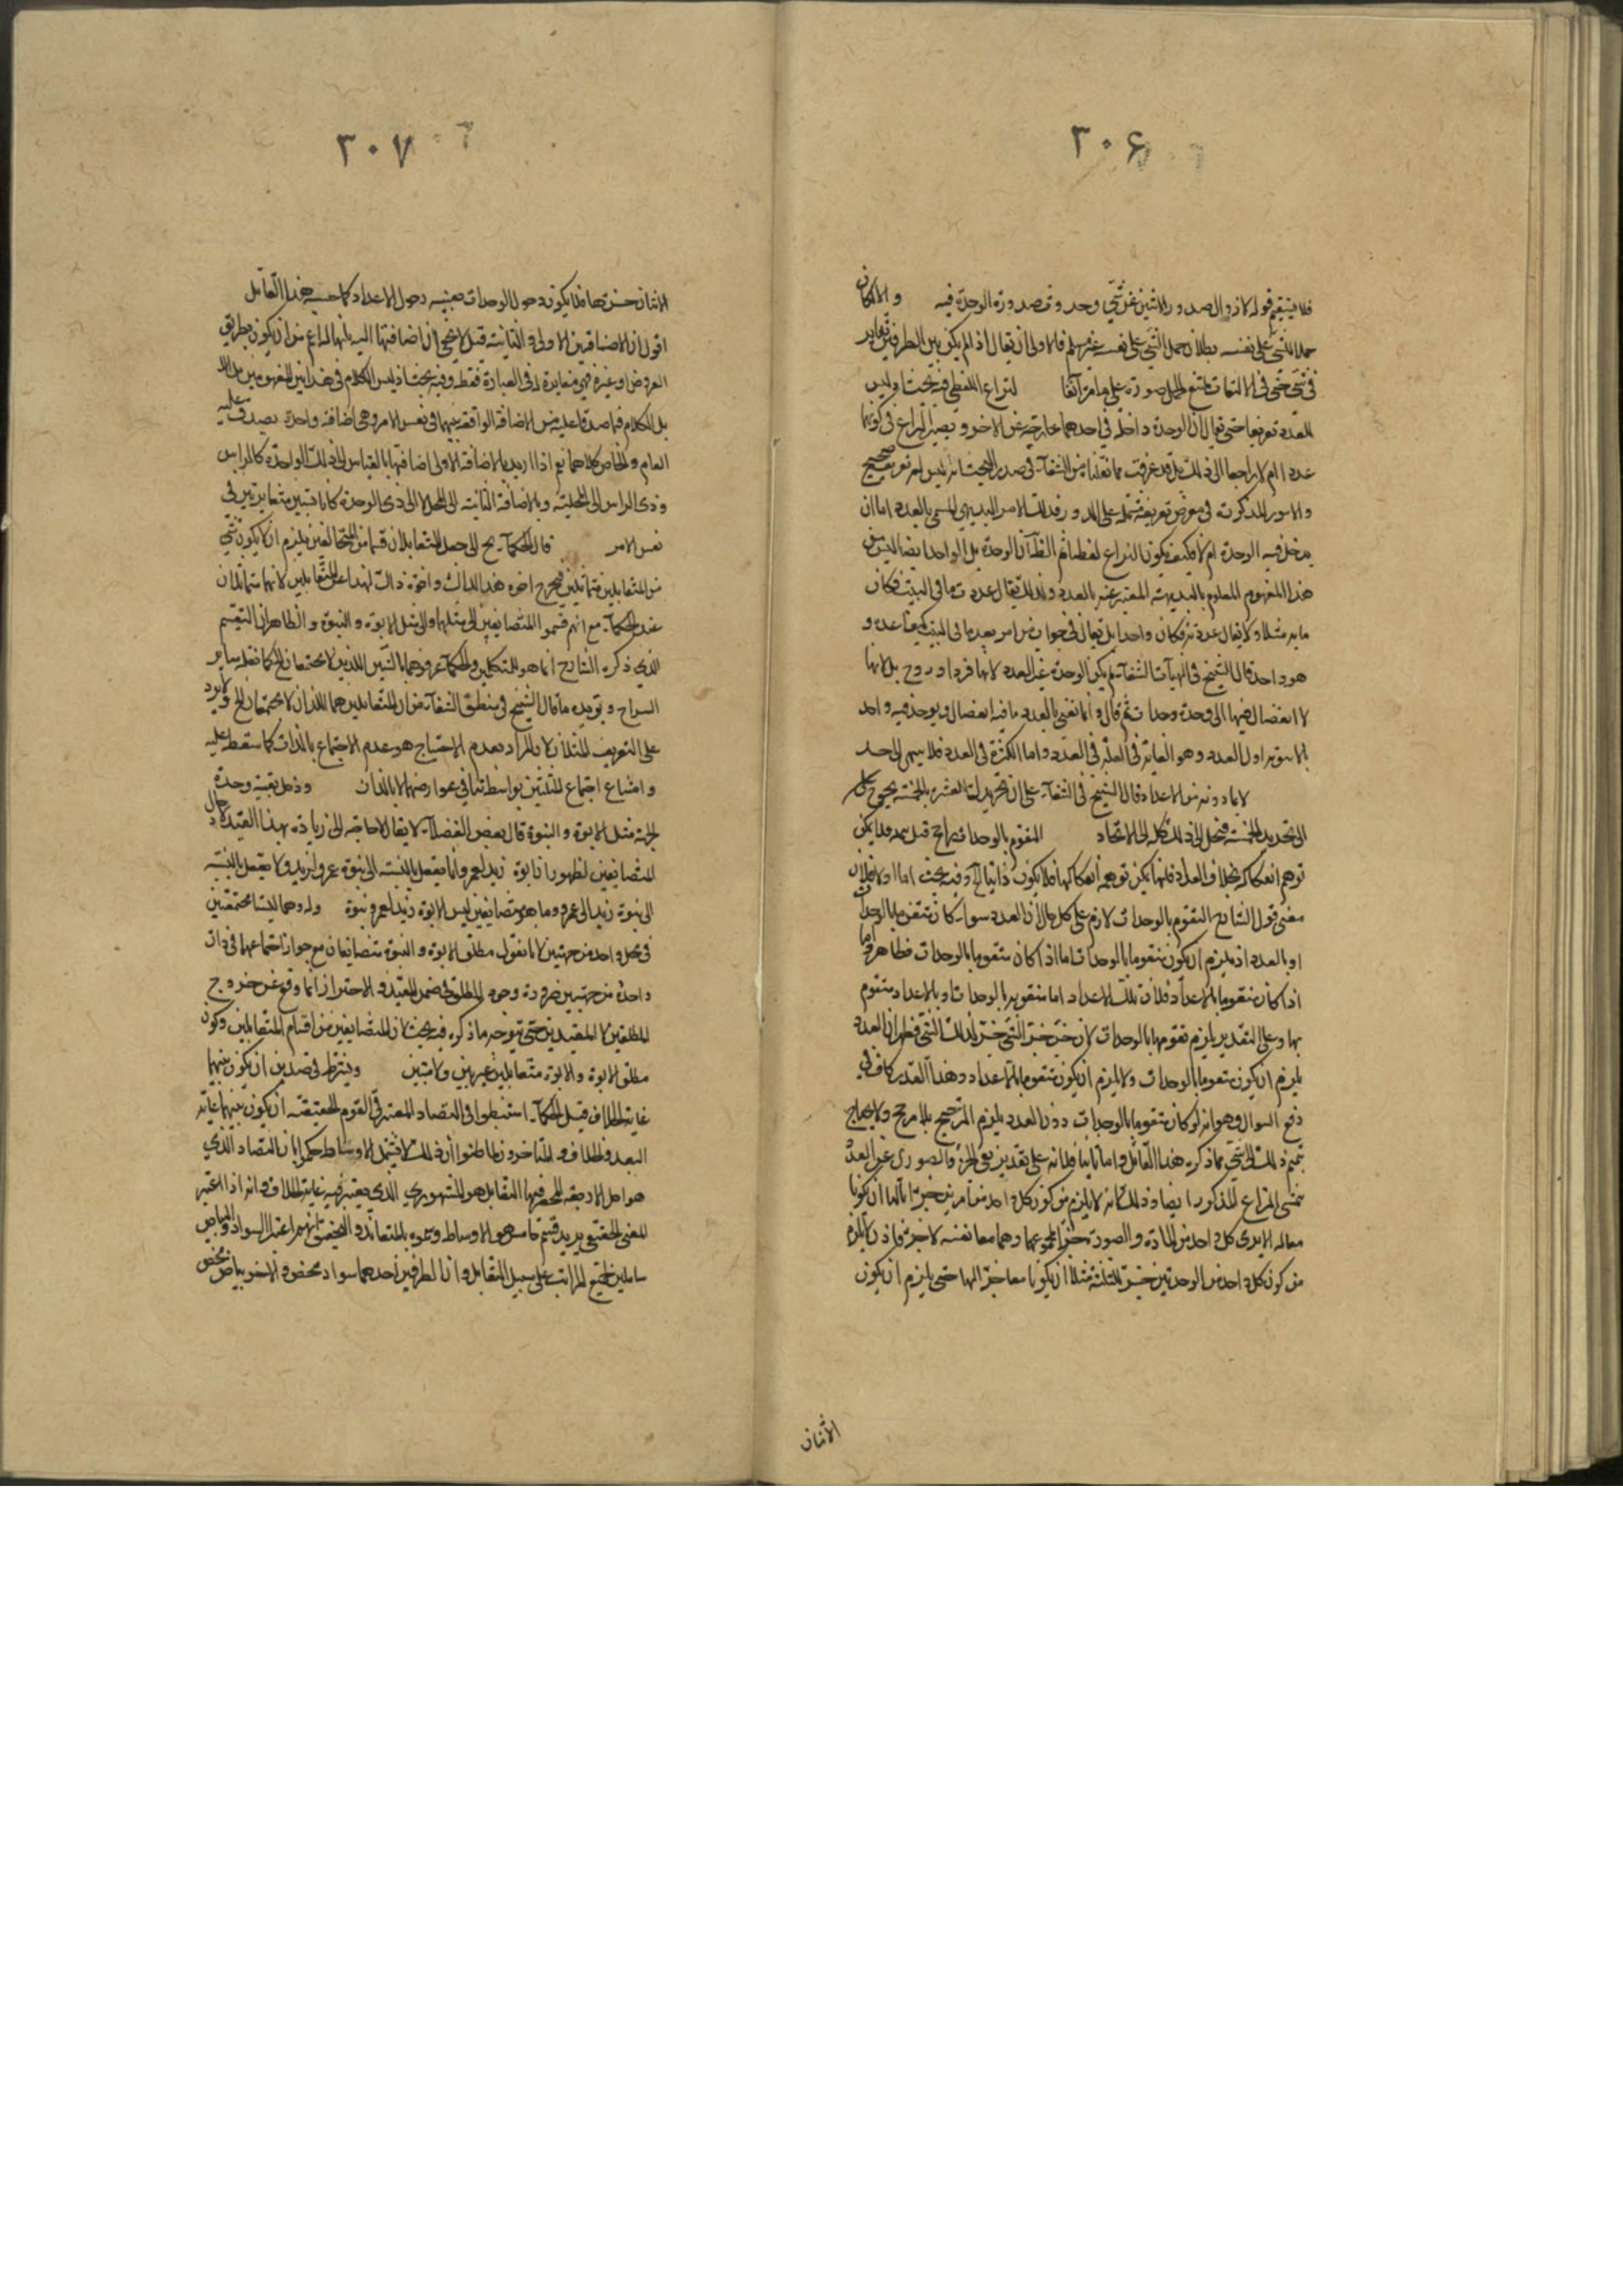 ٣٠۶
فلا ينبغي قوله لان زوال صدور الاثنين عن شيء وحد و صدور الوحدة فيه والا لكان
حملا للشيء على نفسه وبطلان حمل الشيء على نفسه غير مسلم فالاولى ان يقال اذ لم يكن بين الطرفين تغاير
في شيء حتى في الالتفات يمتنع الحمل صورة على ما مر آنفا لنزاع اللفظي فيه بحث اذ ليس
للعدد تعريفا حتى يقال ان الوحدة داخلة في احدهما خارجة عن الاخر و يصير النزاع في كونها
عددا ام لا راجعا الى ذلك بل قد عرفت مما نقلناه من الشفاء في صدر البحث انه ليس له تعريف صحيح
والامور المذكورة في معرض تعريفه مشتملة على الدور فذلك الامر البديهي المسمى بالعدد اما ان
يدخل فيه الوحدة ام لا فكيف يكون النزاع لفظيا ثم الظاهر ان الوحدة بل الواحد ايضا ليس من
هذا المفهوم المعلوم بالبديهة المعتبر عنه بالعدد ولذلك يقال عدد ما في البيت فكان
ماية مثلا ولا يقال عدده فكان واحدا بل يقال في جواب من امر بعد ما في البيت ما عدده و
هو واحد قال الشيخ في الهيات الشفاء لم يكن الوحدة غير العدد لانها فرد او زوج بل لانها
لا انفصال فيها الى وحدة وحدات ثم قال وانما نعني بالعدد ما فيه انفصال ويوجد فيه واحد
بالاسوية اول العدد وهو الغاية في القلة في العدد واما الكثرة في العدد فلا ينتهي الى حد
لا بما دونه من الاعداد قال الشيخ في الشفاء على ان تحديدك العشرة بالخمسة يحوج
الى تحديد الخمسة فينحل الى ذلك كله الى الاتحاد المتقوم بالوحدات راجح قبل
توهم انفكاكه بخلاف العدد فلانها يمكن توهم انفكاكها فلا يكون ذاتيا له وفيه بحث اما اولا فلان
معنى قول الشارح التقوم بالوحدات لازم على كل حال ان العدد سواء كان متقوما بالوحدات
او بالعدد اذ يلزم ان يكون متقوما بالوحدات اما اذا كان متقوما بالوحدات فظاهر واما
اذا كان متقوما بالاعداد فلان تلك الاعداد اما متقومة بالوحدات او بالاعداد متقوم
بها وعلى التقدير يلزم تقومها بالوحدات لان جزء جزء الشيء جزء لذلك الشيء فظهر ان العدد
يلزم ان يكون متقوما بالوحدات ولا يلزم ان يكون متقوما بالاعداد وهذا القدر كاف في
دفع السوال وهو انه لو كان متقوما بالوحدات دون العدد يلزم الترجيح بلا مرجح ولا يحتاج
تتميم ذلك الى شيء مما ذكره هذا القائل واما ثانيا فلانه على تقدير نفي الجزء الصوري عن العدد
يتمشى النزاع المذكور ايضا وذلك لانه لا يلزم من كون كل واحد من امرين جزءا لشيء ان يكونا
معا له الا يرى كل واحد من المادة والصورة جزء لمجموعهما وهما معا نفسه لا جزءه فاذن لا يلزم
من كون كل واحد من الوحدتين جزء للثلثة مثلا ان يكونا معا جزء لها حتى يلزم ان يكون
الاثنان
٣٠٧
الاثنان جزءها فلا يكون دخول الوحدات بعينه دخول الاعداد كما حسبه هذا القائل
اقول ان الاضافة من الاولى والثانية قيل لا يخفى ان اضافتها اليه بانها لها اعم من ان يكون بطريق
العروض او غيره فهي مغايرة له في العبارة فقط وفيه بحث اذ ليس الكلام في هذين المفهومين
بل الكلام فيما صدقا عليه من الاضافة الواقعة بينهما في نفس الامر وهي اضافة واحدة يصدق عليه
العام والخاص كلاهما نعم اذا اريد بالاضافة الاولى اضافتها بالقياس الى ذلك الواحدة كالراس
وذي الراس الى المحلية وبالاضافة الثانية الى المحل الا الى ذي الوحدة كانا نسبتين متغايرتين في
نفس الامر قال الحكماء يح الى جعل المتقابلان قسما من المتخالفين يلزم ان لا يكون شيء
من المتقابلين متماثلين فيخرج اخوة هذا لذاك واخوة ذاك لهذا عن المتقابلين لانهما متماثلان
عند الحكماء مع انهم قسموا المتضايفين الى مثلها والى مثل الابوة والبنوة والظاهر ان التقسيم
الذي ذكره الشارح انما هو للمتكلمين والحكماء عرفوهما بالشيئين اللذين لا يجتمعان الخ كما نقله ساير
الشراح ويؤيده ما قال الشيخ في منطق الشفاء من ان المتقابلين هما اللذان لا يجتمعان الخ ولا يرد
على التعريف المثلان لان المراد بعدم الاجتماع هو عدم الاجتماع بالذات كما سقط عليه
وامتناع اجتماع المثلين بواسطة تنافي عوارضهما لا بالذات ودخل بقيد وحدة
الجهة مثل الابوة والبنوة قال بعض الفضلاء لا يقال لا حاجة الى زيادة بهذا القيد
المتضايفين لظهور ان ابوة زيد لعمرو انما يعقل بالنسبة الى بنوة عمرو لزيد ولا يعقل بالنسبة
الى بنوة زيد الى عمرو وما هو متضايفين ليس الابوة زيد لعمرو وبنوة ولده وهما ليستا مجتمعتين
في محل واحد من جهتين لانا نقول مطلق الابوة والبنوة متضايفان مع جواز اجتماعهما في ذات
واحدة من جهتين ضرورة وجود المطلق في ضمن المقيد والاحتراز انما وقع عن خروج
المطلقين لا المقيدين حتى يتوجه ما ذكره فيه بحث لان المتضايفين من اقسام المتقابلين وكون
مطلق الابوة والابوة متقابلين غير بين ولا مبين ويشترط في ضدين ان يكون بينهما
غاية الخلاف قيل الحكماء استنبطوا في التضاد المعتبر في القوم الحقيقية ان يكون بينهما غاية
البعد والخلاف والمتاخرون لما ظنوا ان ذلك لا يشمل الاوساط حكموا بان التضاد الذي
هو احد الاربعة المنحصر فيها التقابل هو المشهوري الذي يعتبر فيه غاية الخلاف وانه اذا اعتبر
المعنى الحقيقي يزيد قسم خامس هو الاوساط وسموه بالمتعاند والتحقيق انهم اعتبروا السواد والبياض
شاملين لجميع المراتب على سبيل التقابل وان الطرفين احدهما سواد محض والاخر بياض محض